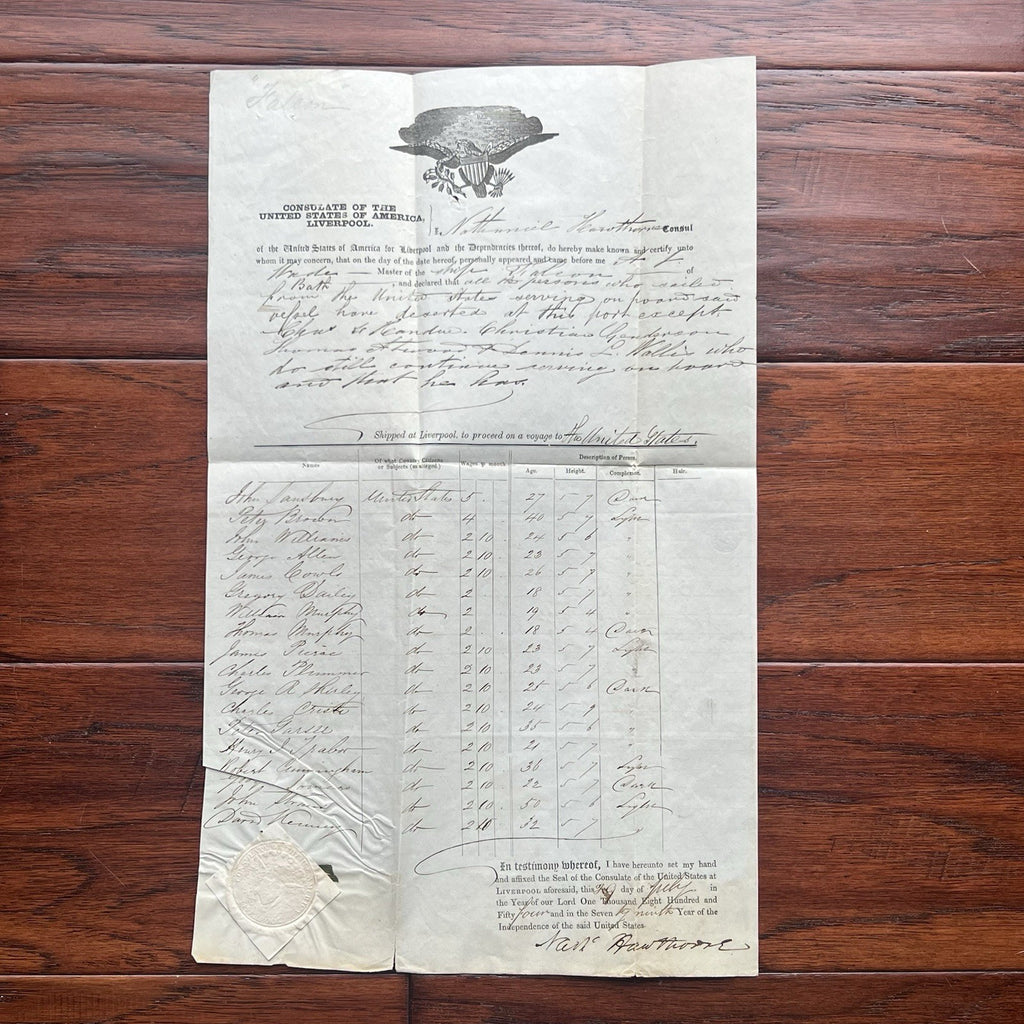 "Falcon"
CONSULATE OF THE
UNITED STATES OF AMERICA,
LIVERPOOL.
I, Nathaniel Hawthorne Consul
of the United States of America for Liverpool and the Dependencies thereof, do hereby make known and certify unto
whom it may concern, that on the day of the date hereof, personally appeared and came before me
Wade Master of the ship Falcon of
Bath and declared that all the persons who sailed
from the United States serving on board said
vessel have deserted at this port except
Christian
Thomas Atwood & Dennis L. Wallis who
do still continue serving on board
and that he has
Shipped at Liverpool, to proceed on a voyage to the United States.
Names Of what Country Citizens or Subjects (as alleged.) Wages ⅌ month Description of Person.
Age. Height. Complexion. Hair.
John Sansbury United States 5 . 27 5 7 Dark
Peter Brown do 4 . 40 5 7
John Williams do 2 10 . 24 5 6 "
George Allen do 2 10 . 23 5 7 "
James do 2 10 . 26 5 7 "
Gregory do 2 . 18 5 7 "
William Murphy do 2 19 5 4 "
Thomas Murphy do 2 . . 18 5 4 Dark
James do 2 10 . 23 5 7 Light
Charles Plummer do 2 10 . 23 5 7
George R. do 2 10 . 25 5 6 Dark
Charles do 2 10 . 24 5 9 "
do 2 10 . 35 5 6 "
Henry do 2 10 . 21 5 7 "
Robert Cunningham do 2 10 . 36 5 7 Light
do 2 10 . 22 5 7 Dark
John do 2 10 . 50 5 6 Light
David do 2 10 . 32 5 7 "
In testimony whereof, I have hereunto set my hand
and affixed the Seal of the Consulate of the United States at
LIVERPOOL aforesaid, this day of July in
the Year of our Lord One Thousand Eight Hundred and
Fifty four and in the Seventy ninth Year of the
Independence of the said United States.
Nathl Hawthorne